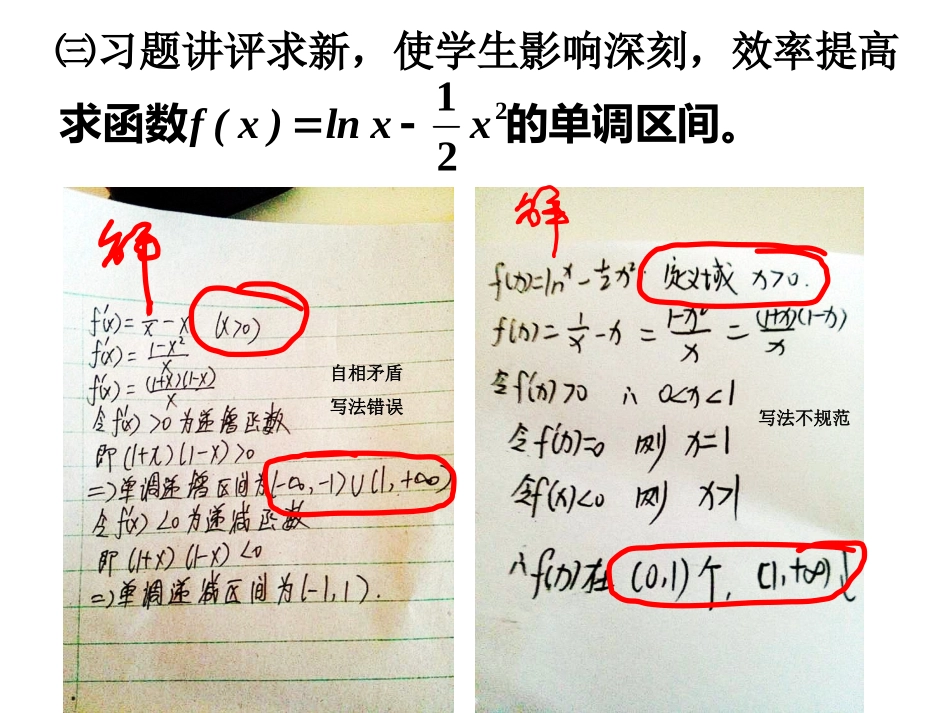 ㈢习题讲评求新，使学生影响深刻，效率提高
求函数f ( x ) = ln x - 1/2 x²的单调区间。
解
f'(x)= 1/x - x (x>0)
f'(x)= (1-x²)/x
f'(x)= (1+x)(1-x)/x
令f'(x)>0为递增函数
即(1+x)(1-x)>0
=>单调递增区间为(-∞,-1)∪(1,+∞)
令f'(x)<0为递减函数
即(1+x)(1-x)<0
=>单调递减区间为(-1,1).
自相矛盾
写法错误
解
f(x)=lnˣ-½x² 定义域 x>0.
f'(x)= 1/x - x = (1-x²)/x = (1+x)(1-x)/x
令f'(x)>0 ∴ 0<x<1
令f'(x)=0 则 x=1
令f'(x)<0 则 x>1
∴f(x)在(0,1)↑, (1,+∞)↓
写法不规范